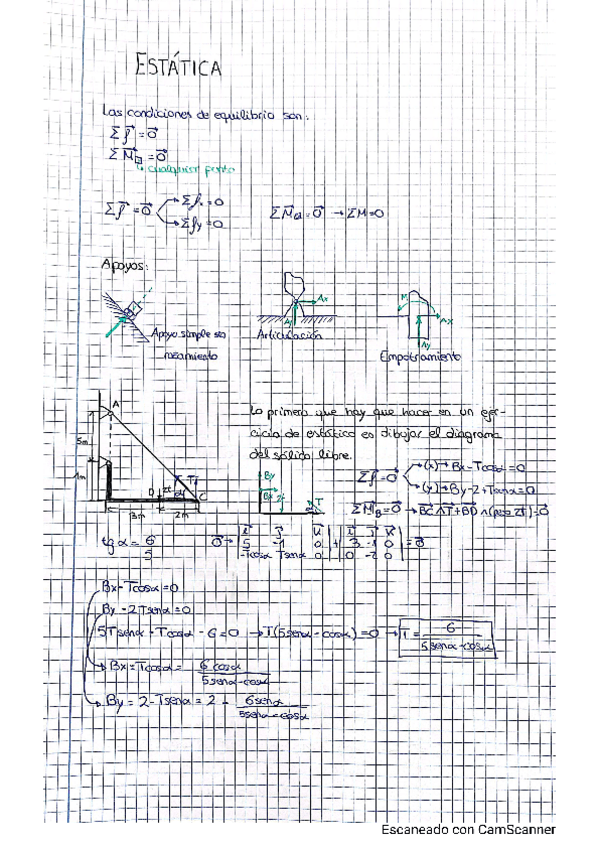 ESTÁTICA
Las condiciones de equilibrio son:
Σf⃗ = 0⃗
ΣM⃗□ = 0⃗
↳ cualquier punto
Σf⃗ = 0⃗ → Σfx = 0
→ Σfy = 0
ΣM⃗a = 0⃗ → ΣM = 0
Apoyos:
Apoyo simple sin
rozamiento
Ax
Ay
Articulación
M
Ax
Ay
Empotramiento
A
5m
1m
D
T
C
3m
2m
Lo primero que hay que hacer en un ejer-
cicio de estático es dibujar el diagrama
del sólido libre.
By
Bx
T
Σf⃗ = 0⃗ → (x) → Bx - Tcosα = 0
→ (y) → By - 2 + Tsenα = 0
ΣM⃗B = 0⃗ → BC ∧ T + BD ∧ (peso 2f) = 0
tg α = 6/5
0⃗ → | i j k | 5 -1 0 | -Tcosα Tsenα 0 | + | i j k | 3 -1 0 | 0 -2 0 | = 0⃗
Bx - Tcosα = 0
By - 2Tsenα = 0
5Tsenα - Tcosα - 6 = 0 → T(5senα - cosα) = 0 → T = 6/(5senα - cosα)
→ Bx = Tcosα = 6cosα/(5senα - cosα)
→ By = 2 - Tsenα = 2 - 6senα/(5senα - cosα)
Escaneado con CamScanner